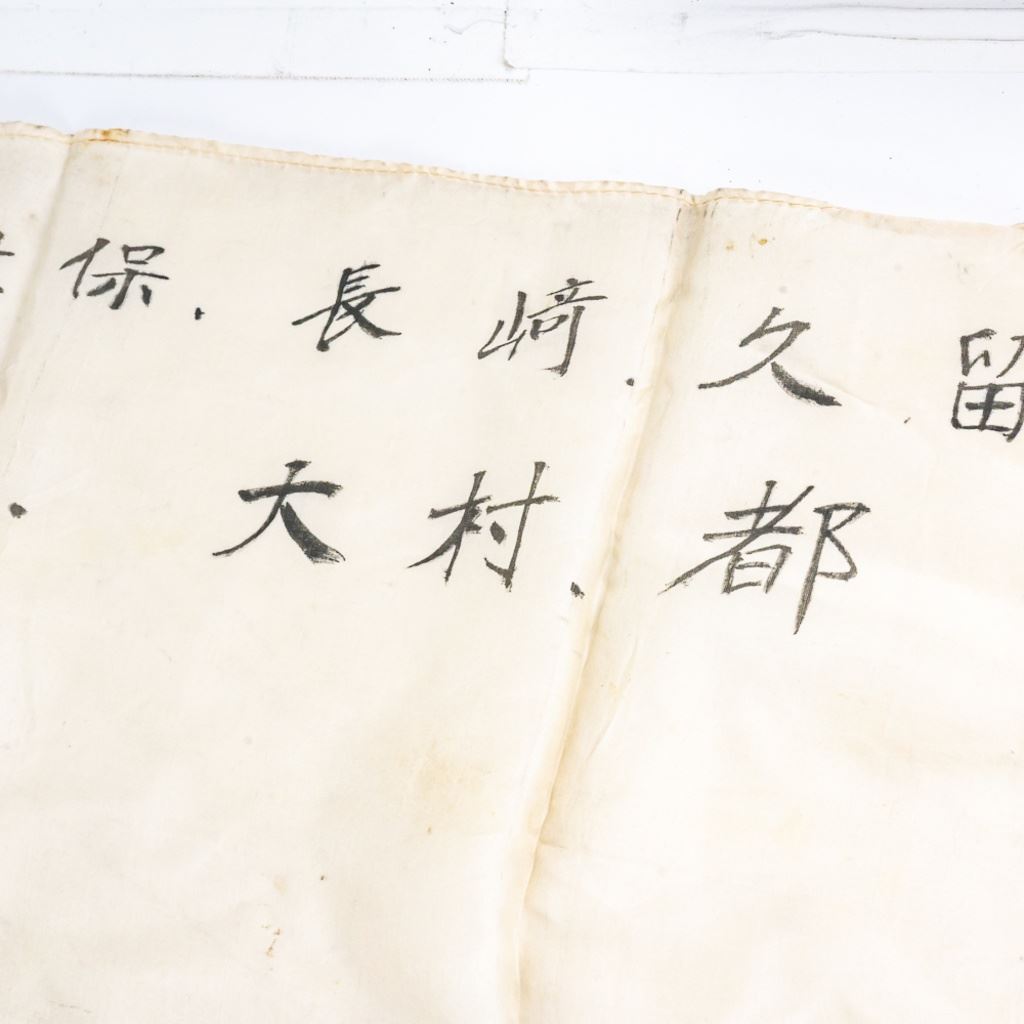 保．長﨑．久留
．大村．都